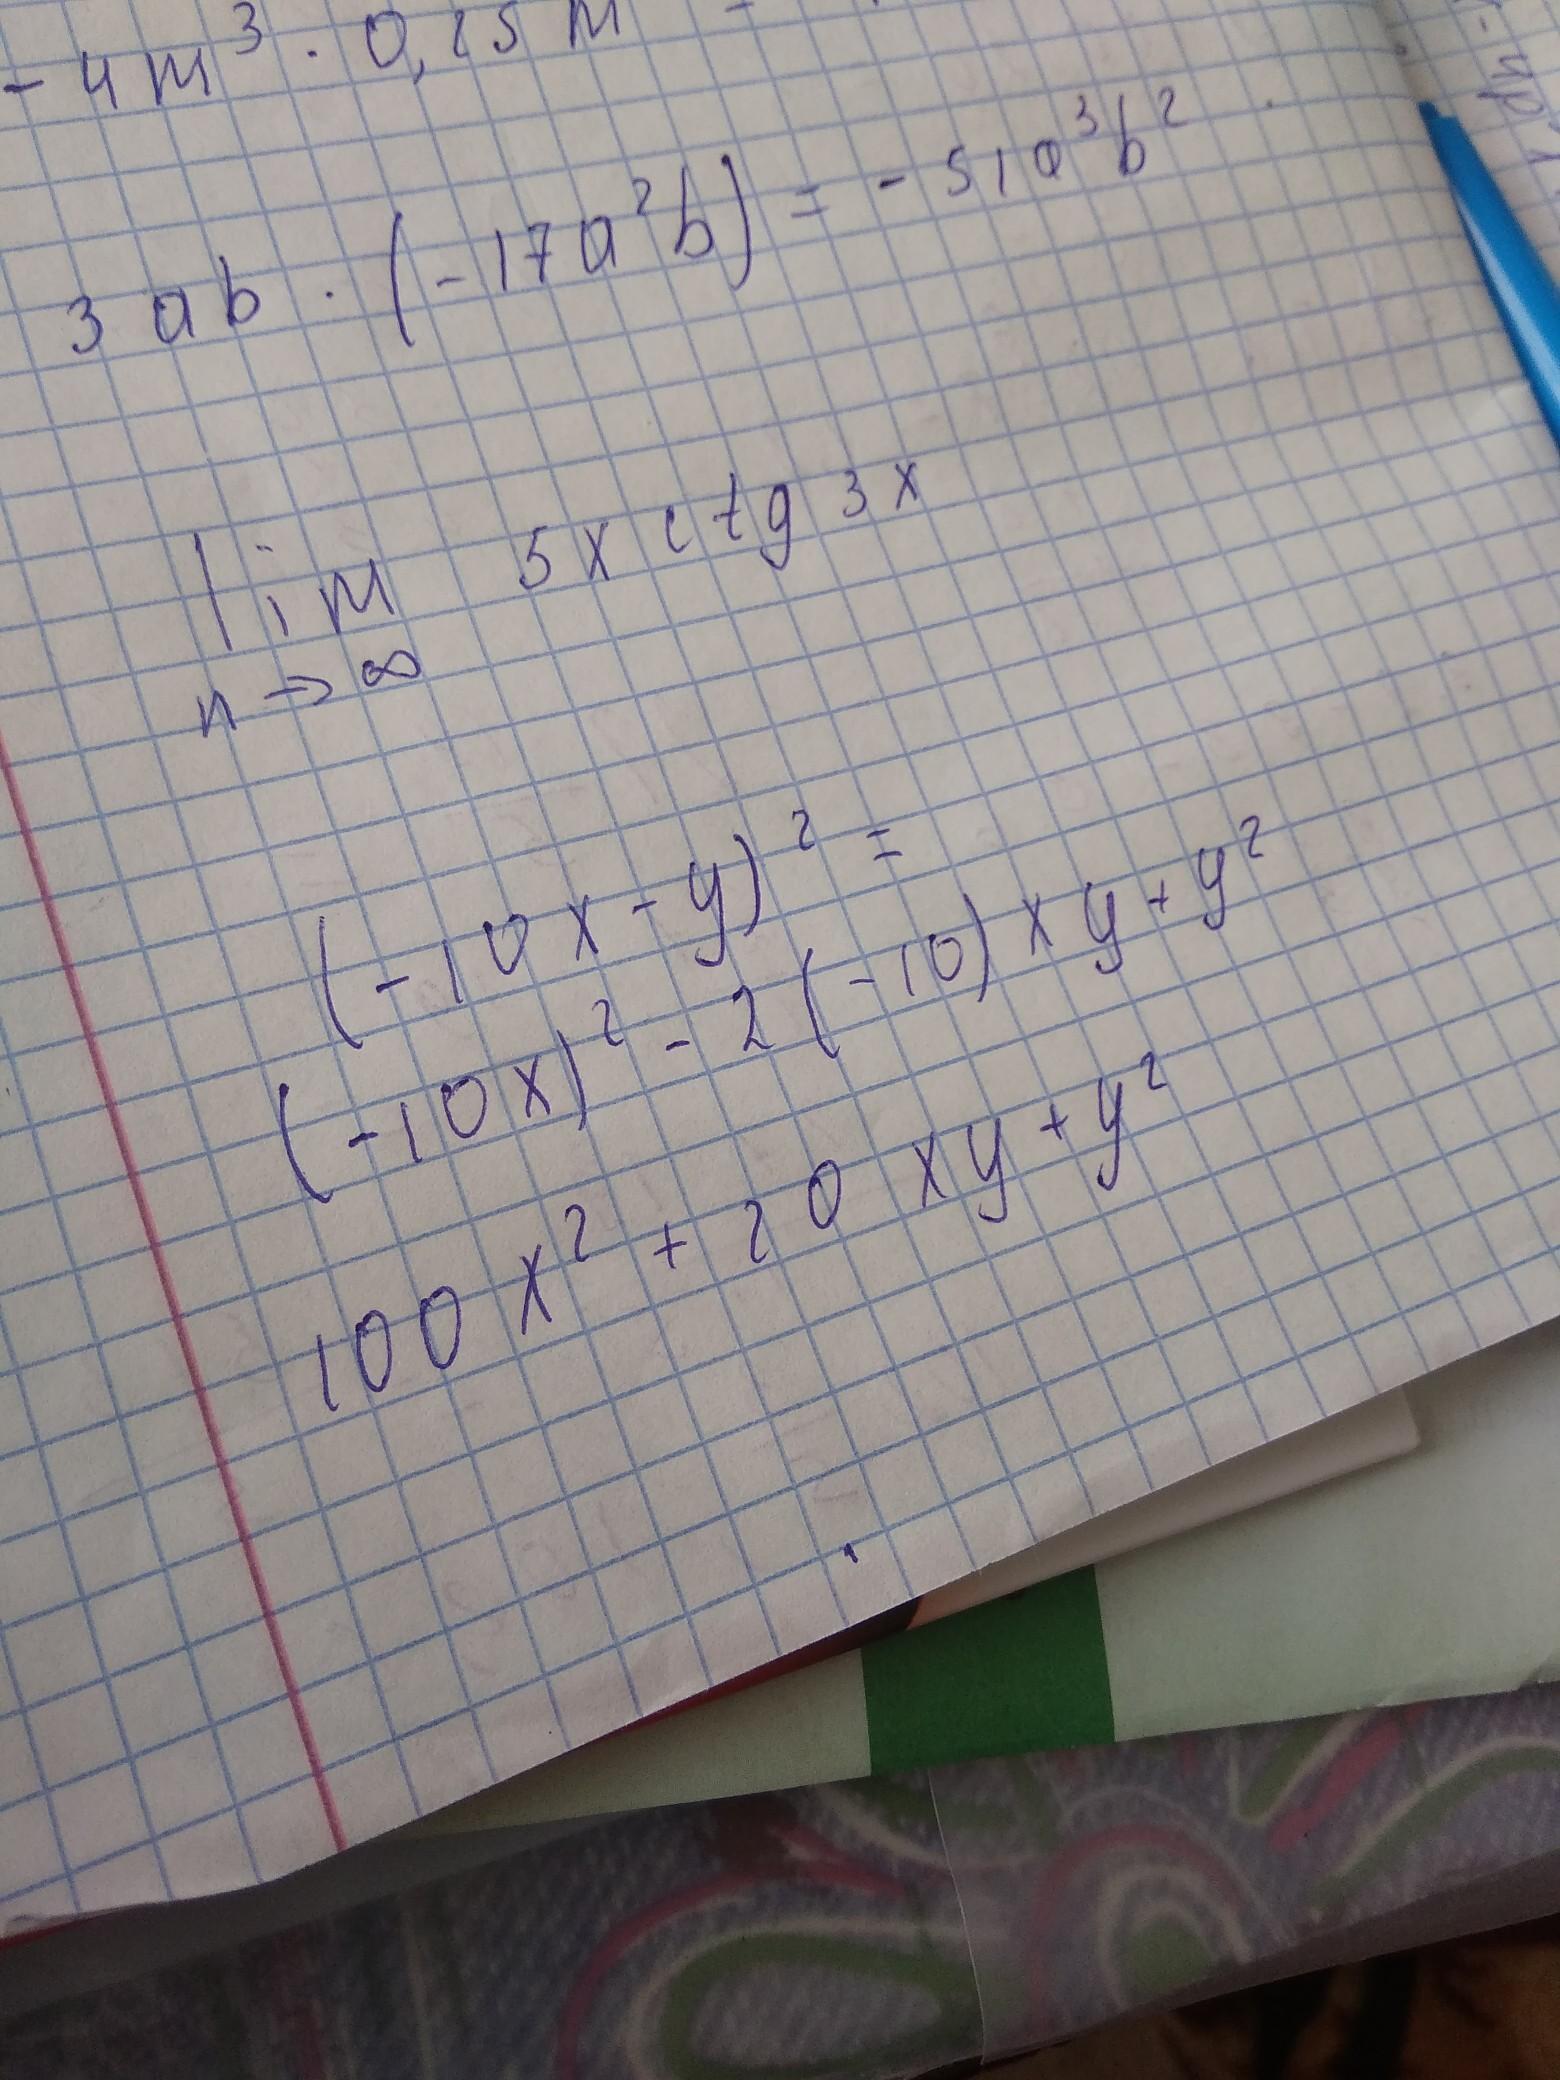 - 4m³ · 0,25m =
3ab · (-17a²b) = - 51a³b²
lim 5x ctg 3x
n→∞
(-10x-y)² =
(-10x)² - 2(-10)xy+y²
100x² + 20xy+y²